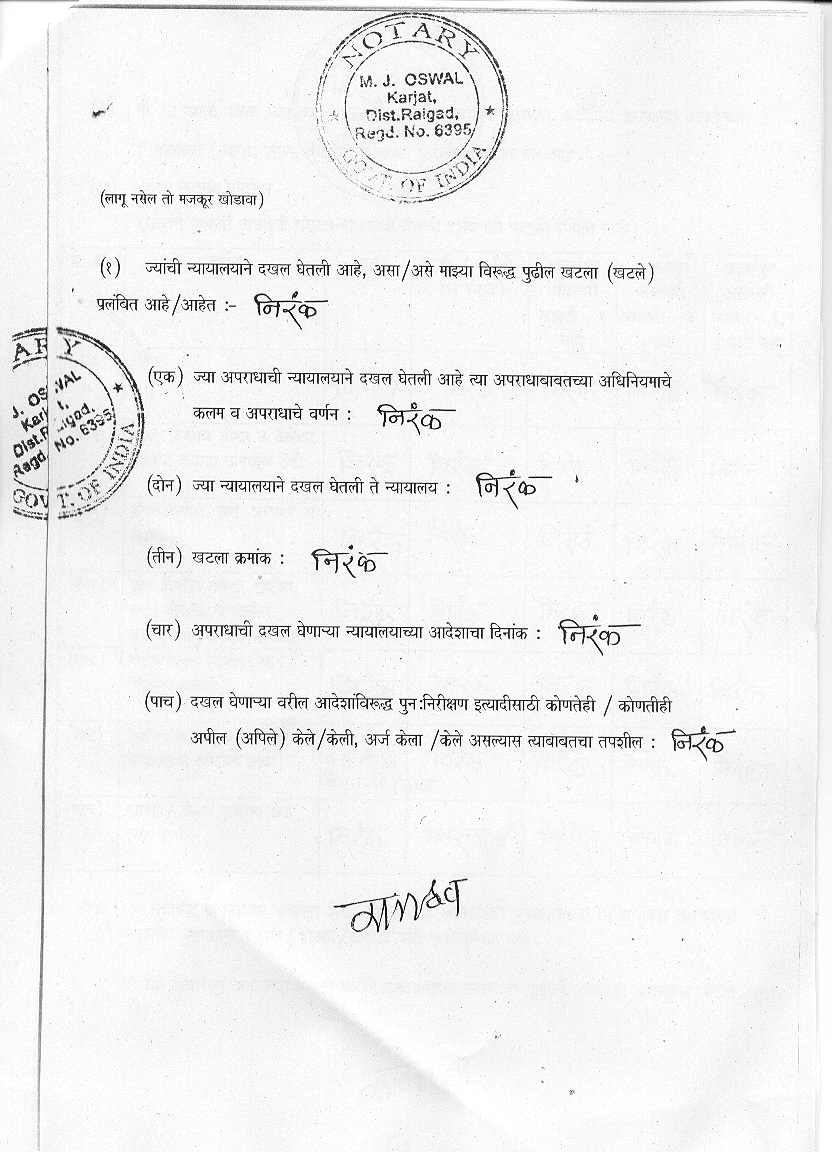 NOTARY
M. J. OSWAL
Karjat,
Dist.Raigad,
Regd. No. 6395
GOVT. OF INDIA
(लागू नसेल तो मजकूर खोडावा)
(१) ज्यांची न्यायालयाने दखल घेतली आहे, असा/असे माझ्या विरूद्ध पुढील खटला (खटले)
प्रलंबित आहे/आहेत :- निरंक
ARY
J. OSWAL
Karjat,
Dist.Raigad,
Regd. No. 6395
GOVT. OF INDIA
(एक) ज्या अपराधाची न्यायालयाने दखल घेतली आहे त्या अपराधाबाबतच्या अधिनियमाचे
कलम व अपराधाचे वर्णन : निरंक
(दोन) ज्या न्यायालयाने दखल घेतली ते न्यायालय : निरंक
(तीन) खटला क्रमांक : निरंक
(चार) अपराधाची दखल घेणाऱ्या न्यायालयाच्या आदेशाचा दिनांक : निरंक
(पाच) दखल घेणाऱ्या वरील आदेशांविरूद्ध पुन:निरीक्षण इत्यादीसाठी कोणतेही / कोणतीही
अपील (अपिले) केले/केली, अर्ज केला /केले असल्यास त्याबाबतचा तपशील : निरंक